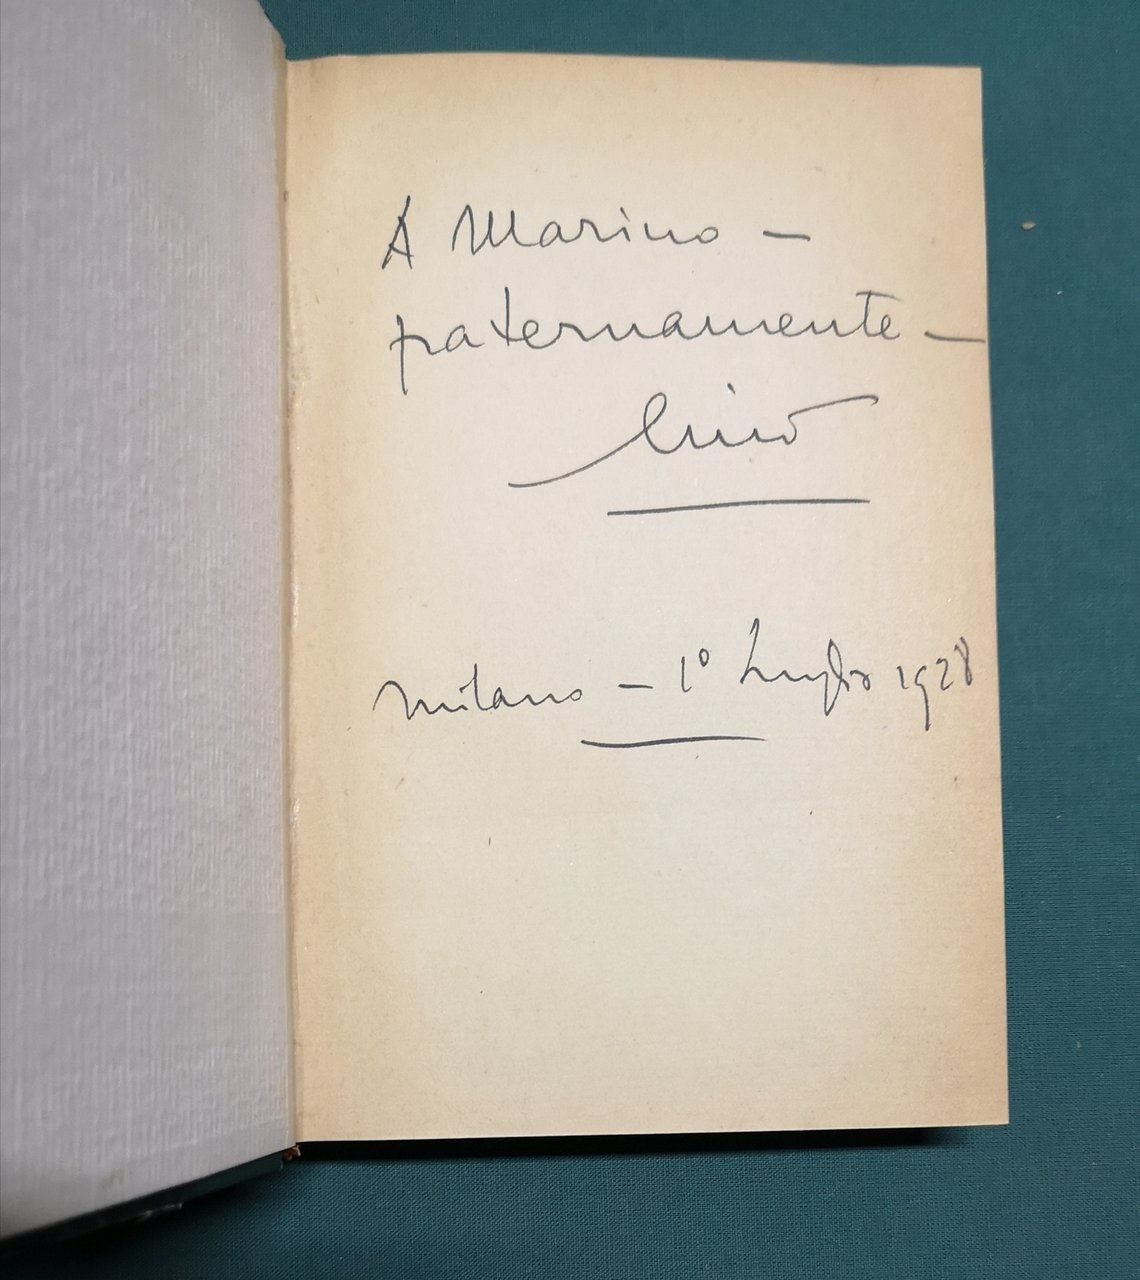 A Marino —
fraternamente —
Milano — 1º Luglio 1928